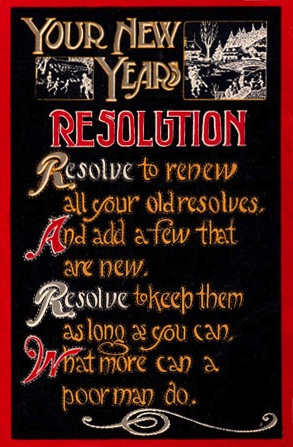 YOUR NEW
YEARS
RESOLUTION
Resolve to renew
all your old resolves.
And add a few that
are new.
Resolve to keep them
as long as you can.
What more can a
poor man do.